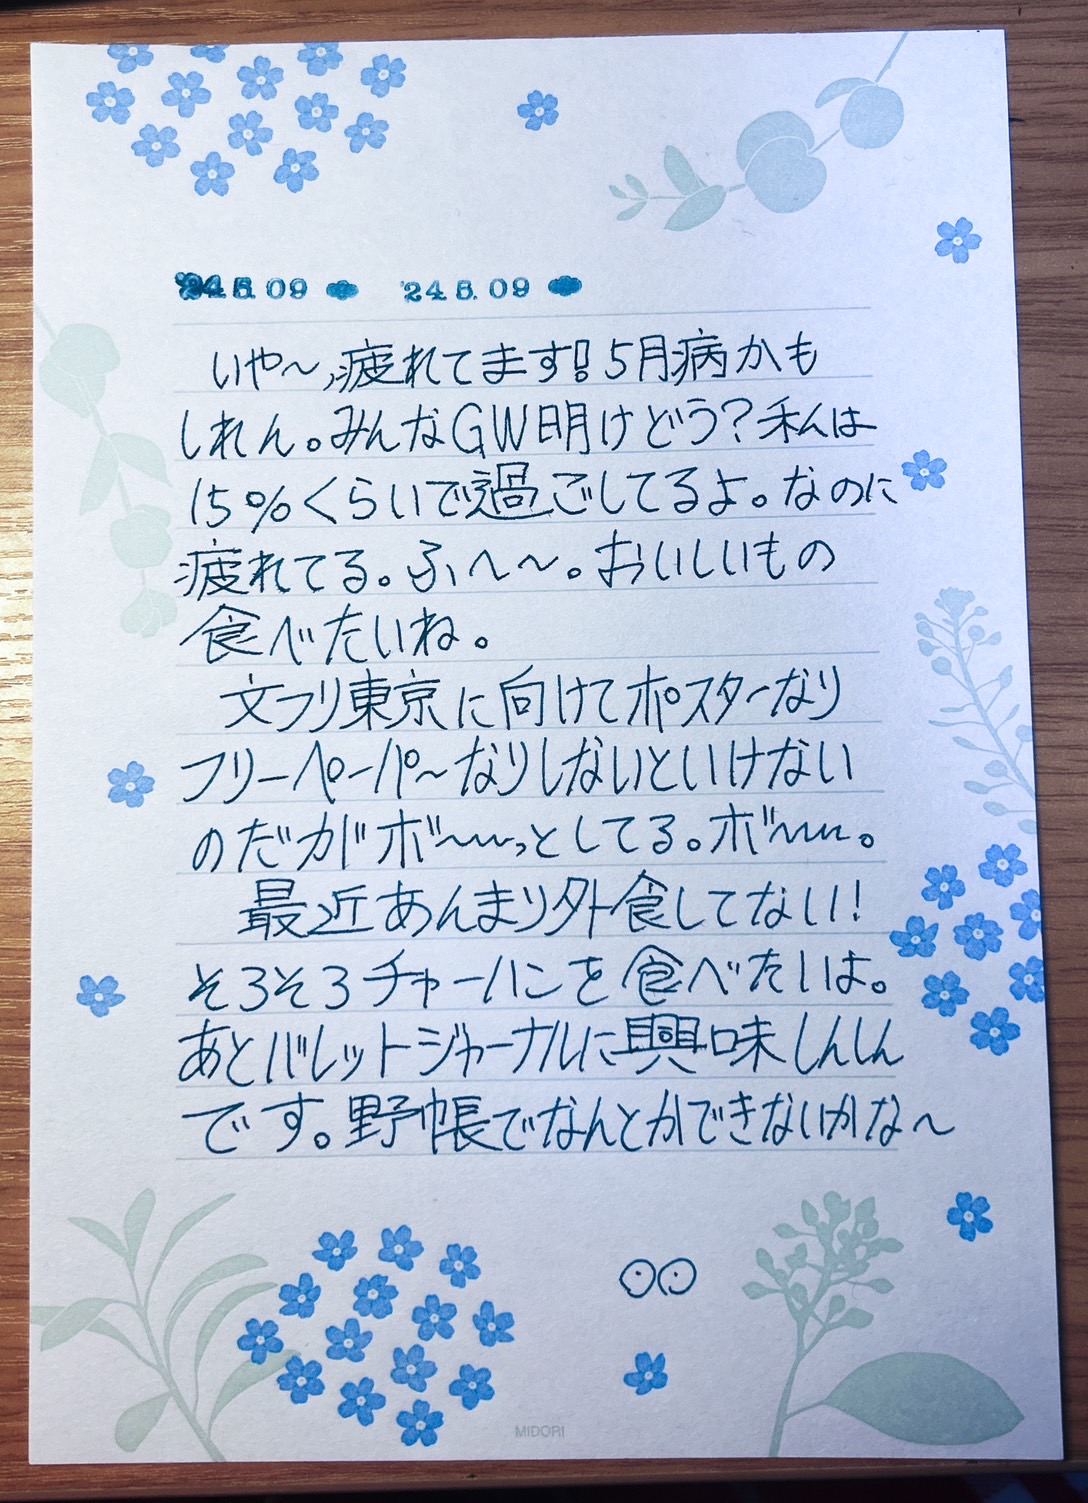 '24.5.09 '24.5.09
いや〜、疲れてます!5月病かも
しれん。みんなGW明けどう?私は
15%くらいで過ごしてるよ。なのに
疲れてる。ふへ〜。おいしいもの
食べたいね。
文フリ東京に向けてポスターなり
フリーペーパ〜なりしないといけない
のだがボ〜っとしてる。ボ〜。
最近あんまり外食してない!
そろそろチャーハンを食べたいよ。
あとバレットジャーナルに興味しんしん
です。野帳でなんとかできないかな〜
MIDORI